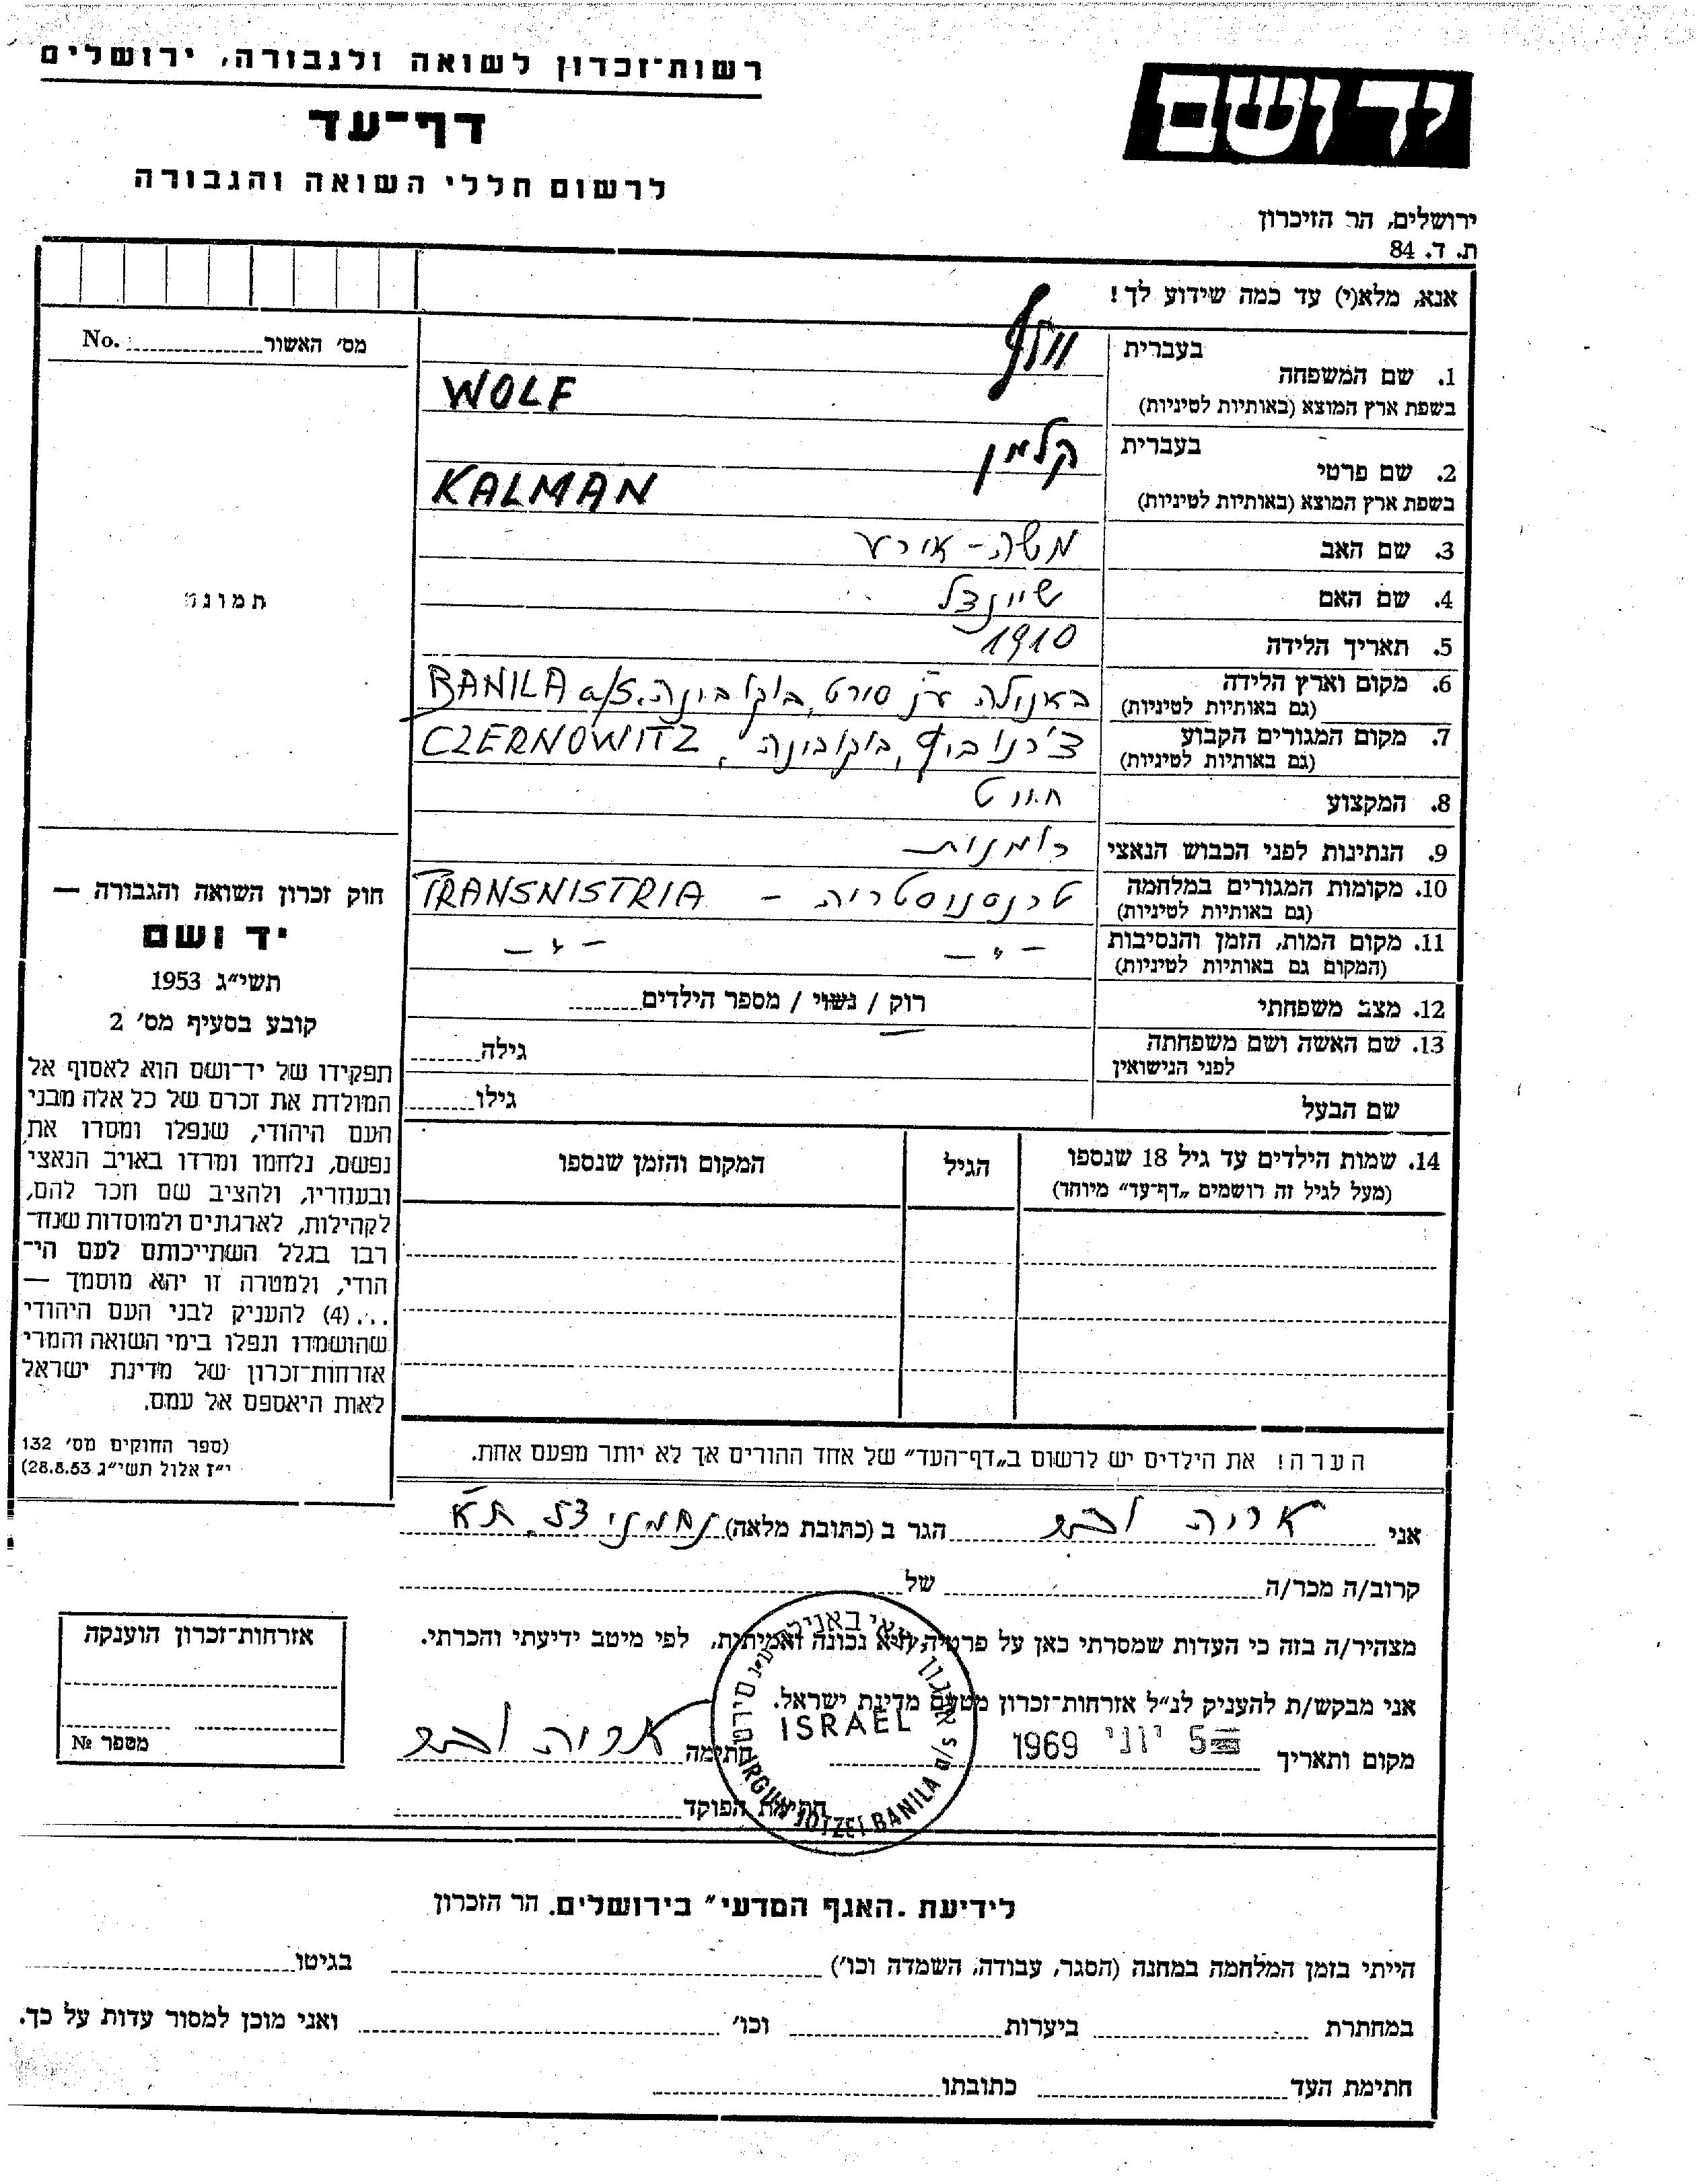 רשות־זכרון לשואה ולגבורה, ירושלים
דף־עד
לרשום חללי השואה והגבורה
יד ושם
ירושלים, הר הזיכרון
ת. ד. 84
אנא, מלא(י) עד כמה שידוע לך!
מס׳ האשור No.
תמונה
1. שם המשפחה
בעברית וולף
בשפת ארץ המוצא (באותיות לטיניות) WOLF
2. שם פרטי
בעברית קלמן
בשפת ארץ המוצא (באותיות לטיניות) KALMAN
3. שם האב משה-
4. שם האם שיינצל
5. תאריך הלידה 1910
6. מקום וארץ הלידה באנילה ע״נ סרט, בוקובינה. BANILA a/S
(גם באותיות לטיניות)
7. מקום המגורים הקבוע צ׳רנוביץ, בוקובינה, CZERNOWITZ
(גם באותיות לטיניות)
8. המקצוע
9. הנתינות לפני הכבוש הנאצי רומנית
10. מקומות המגורים במלחמה טרנסניסטריה - TRANSNISTRIA
(גם באותיות לטיניות)
11. מקום המות, הזמן והנסיבות — ״ — — ״ —
(המקום גם באותיות לטיניות)
12. מצב משפחתי רוק / נשוי / מספר הילדים
13. שם האשה ושם משפחתה גילה
לפני הנישואין
שם הבעל גילו
14. שמות הילדים עד גיל 18 שנספו הגיל המקום והזמן שנספו
(מעל לגיל זה רושמים „דף־עד״ מיוחד)
חוק זכרון השואה והגבורה —
יד ושם
תשי״ג 1953
קובע בסעיף מס׳ 2
תפקידו של יד־ושם הוא לאסוף אל
המולדת את זכרם של כל אלה מבני
העם היהודי, שנפלו ומסרו את
נפשם, נלחמו ומרדו באויב הנאצי
ובעוזריו, ולהציב שם וזכר להם,
לקהילות, לארגונים ולמוסדות שנח־
רבו בגלל השתייכותם לעם הי־
הודי, ולמטרה זו יהא מוסמך —
...(4) להעניק לבני העם היהודי
שהושמדו ונפלו בימי השואה והמרי
אזרחות־זכרון של מדינת ישראל
לאות היאספם אל עמם.
(ספר החוקים מס׳ 132
י״ז אלול תשי״ג 28.8.53)
הערה! את הילדים יש לרשום ב„דף־העד״ של אחד ההורים אך לא יותר מפעם אחת.
אני אריה הגר ב (כתובת מלאה) נחמני
קרוב/ה מכר/ה של
מצהיר/ה בזה כי העדות שמסרתי כאן על פרטיה היא נכונה ואמיתית, לפי מיטב ידיעתי והכרתי.
אני מבקש/ת להעניק לנ״ל אזרחות־זכרון מטעם מדינת ישראל.
מקום ותאריך 5 יוני 1969 חתימה אריה
חתימת הפוקד
ISRAEL
IRGUN JOTZEI BANILA a/S
אזרחות־זכרון הוענקה
מספר №
לידיעת „האגף המדעי״ בירושלים. הר הזכרון
הייתי בזמן המלחמה במחנה (הסגר, עבודה, השמדה וכו׳) בגיטו
במחתרת ביערות וכו׳ ואני מוכן למסור עדות על כך.
חתימת העד כתובתו